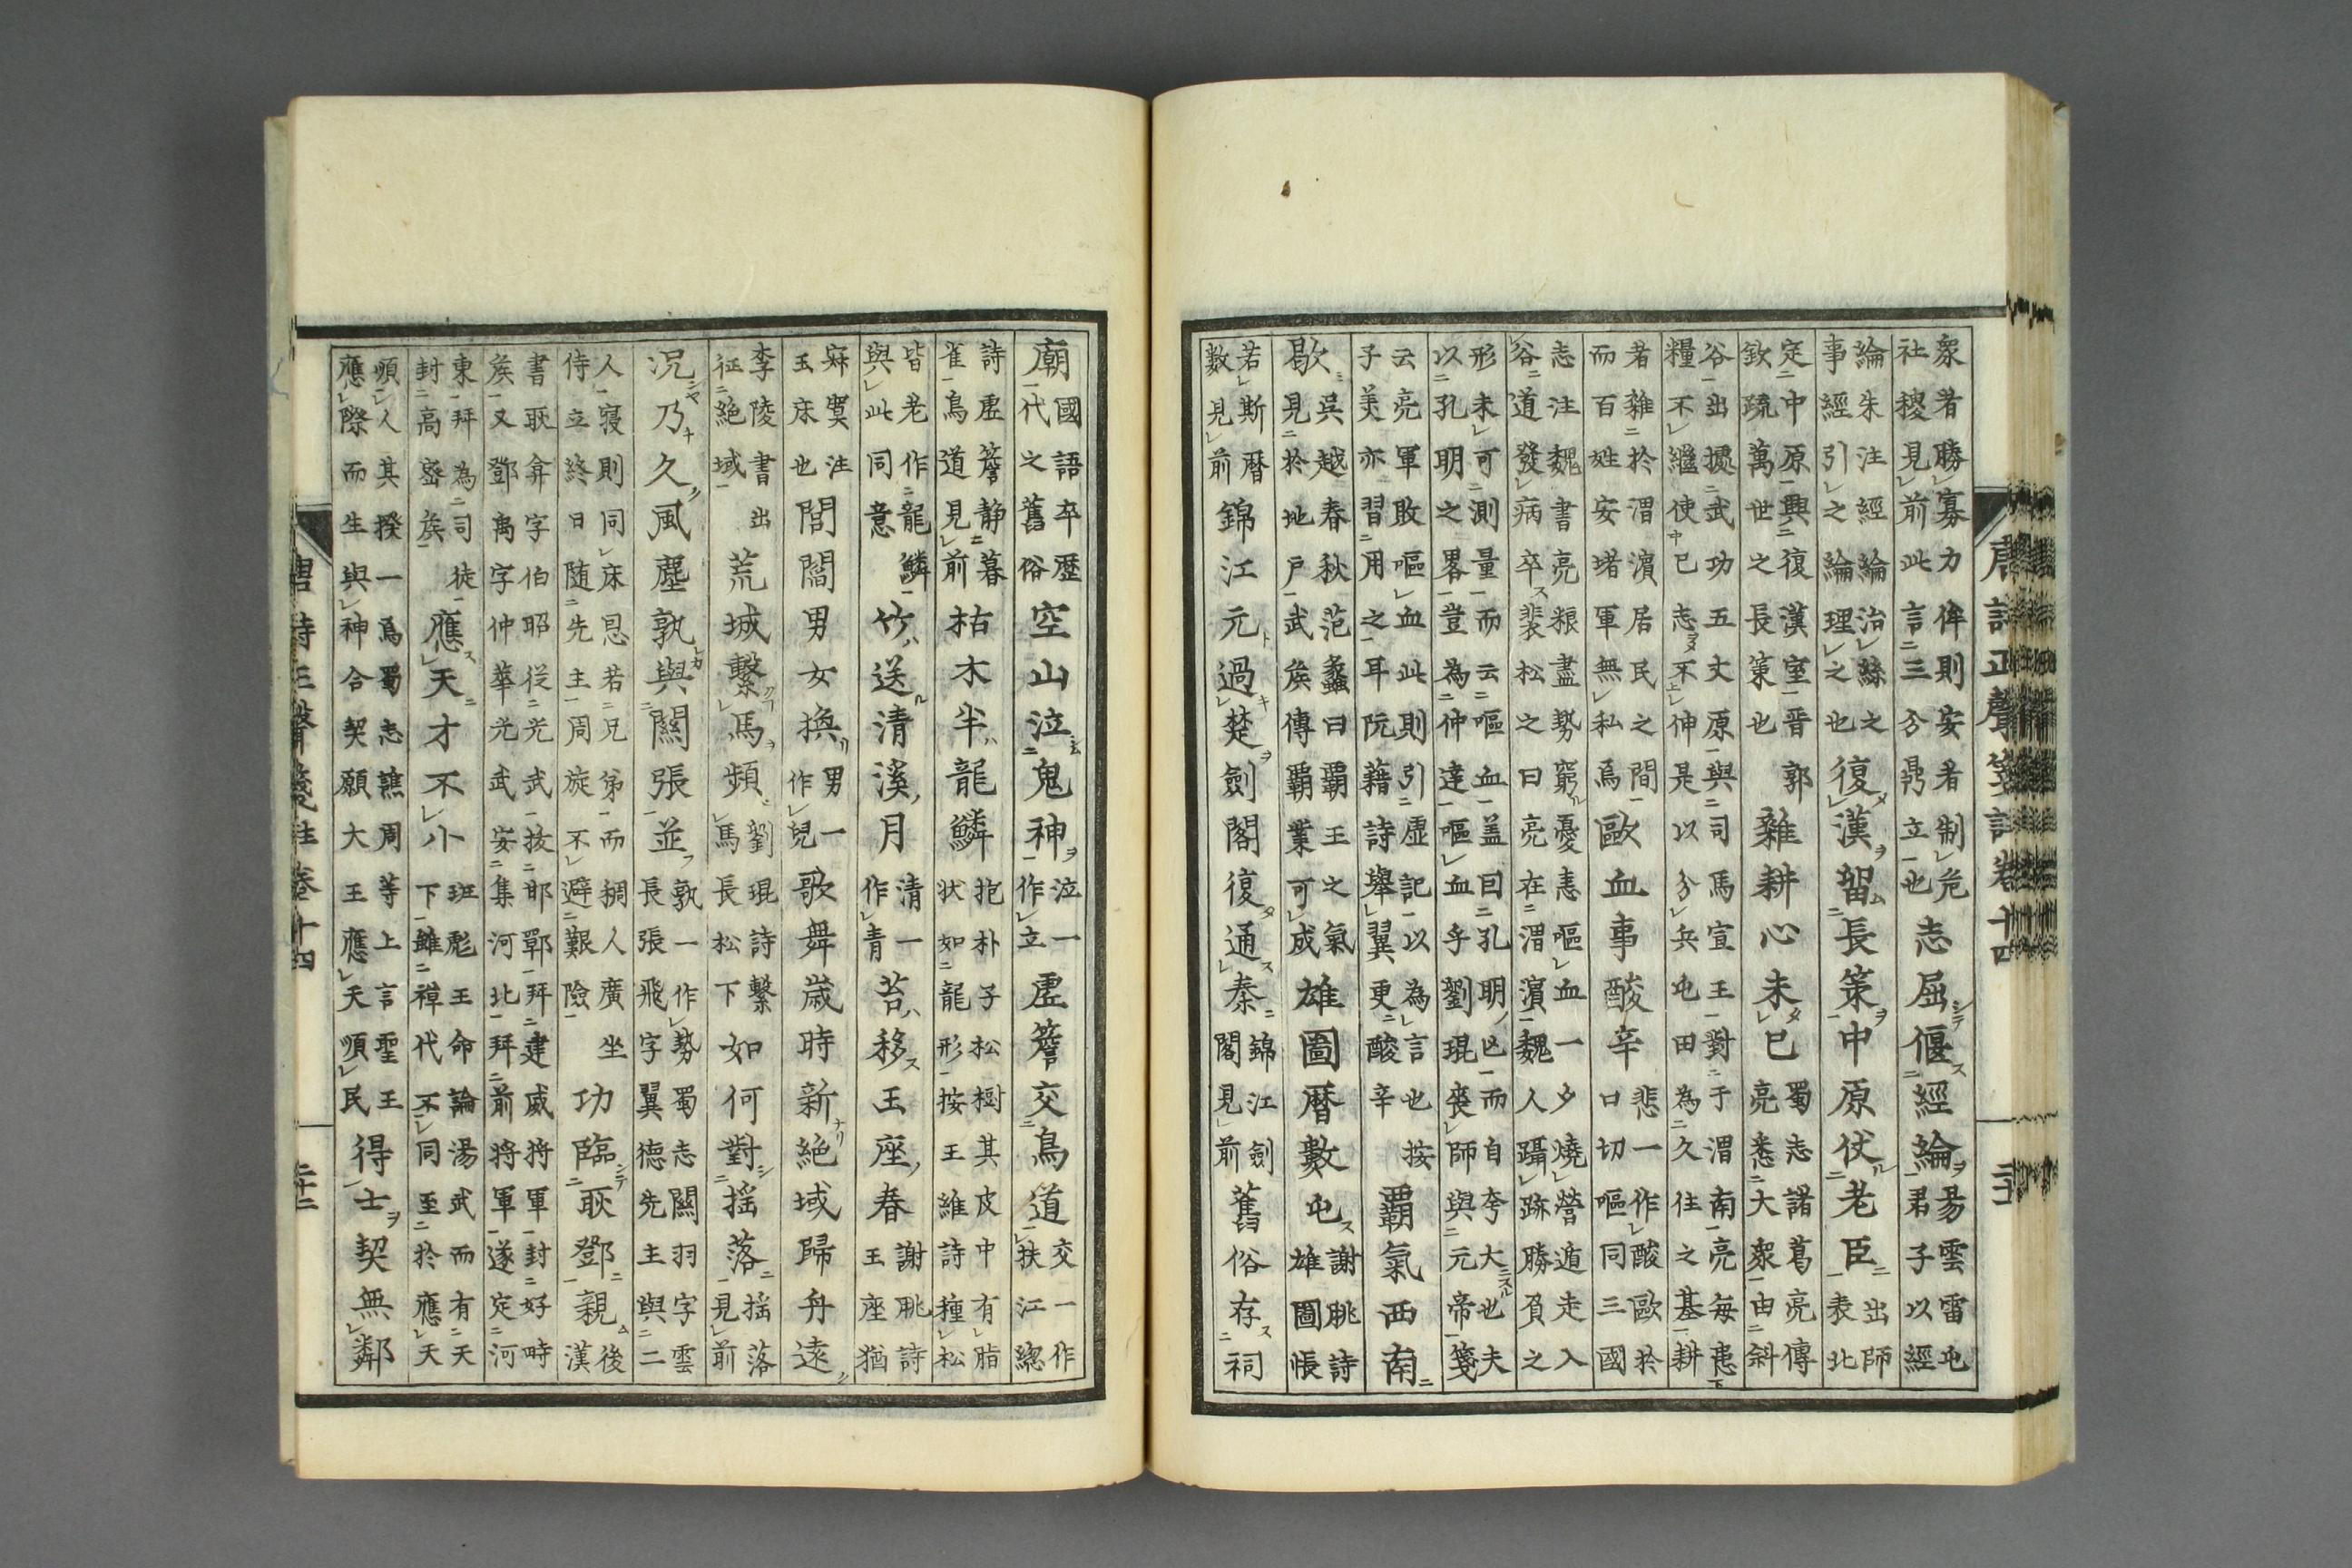 唐詩正聲箋註卷十四
衆若勝寡力侔則安者制危社稷見前此言三分鼎立也志屈偃經綸易雲雷屯君子以經
綸朱注經綸治絲之事經引之綸理之也復漢留長策中原伏老臣出師表北
定中原興復漢室晋郭欽疏萬世之長策也雜耕心未已蜀志諸葛亮傳亮悉大衆由斜
谷出據武功五丈原與司馬宣王對于渭南亮毎患糧不繼使己志不伸是以分兵屯田為久住之基耕
者雜於渭濵居民之間而百姓安堵軍無私焉歐血事酸辛悲一作酸歐於口切嘔同三國
志注魏書亮粮盡勢窮憂恚嘔血一夕燒營遁走入谷道發病卒裴松之曰亮在渭濵魏人躡跡勝負之
形未可測量而云嘔血盖因孔明亡而自夸大也夫以孔明之畧豈為仲達嘔血乎劉琨喪師與元帝箋
云亮軍敗嘔血此則引虚記以為言也按子美亦習用之耳阮藉詩舉翼更酸辛霸氣西南
歇呉越春秋范蠡曰霸王之氣見於地戸武矦傳霸業可成雄圖暦數屯謝朓詩雄圖悵
若斯暦數見前錦江元過楚劍閣復通秦錦江劍閣見前舊俗存祠
廟國語卒歴一代之舊俗空山泣鬼神泣一作立虚簷交鳥道交一作扶江總
詩虚簷静暮雀鳥道見前枯木半龍鱗抱朴子松樹其皮中有脂状如龍形按王維詩種松
皆老作龍鱗與此同意竹送清溪月清一作青苔移玉座春謝朓詩玉座猶
寂寞注玉床也閭閻男女換男一作兒歌舞歳時新絶域歸舟遠
李陵書出征絶域荒城繫馬頻劉琨詩繫馬長松下如何對揺落揺落見前
況乃久風塵孰與關張並孰一作勢蜀志關羽字雲長張飛字翼德先主與二
人寢則同床恩若兄弟而稠人廣坐侍立終日随先主周旋不避艱險功臨耿鄧親後漢
書耿弇字伯昭從光武抜邯鄲拜建威将軍封好畤矦又鄧禹字仲華光武安集河北拜前将軍遂定河
東拜為司徒封高密矦應天才不小班彪王命論湯武而有天下雖禅代不同至於應天
順人其揆一焉蜀志譙周等上言聖王應際而生與神合契願大王應天順民得士契無鄰
唐詩正聲箋註巻十四
二十二